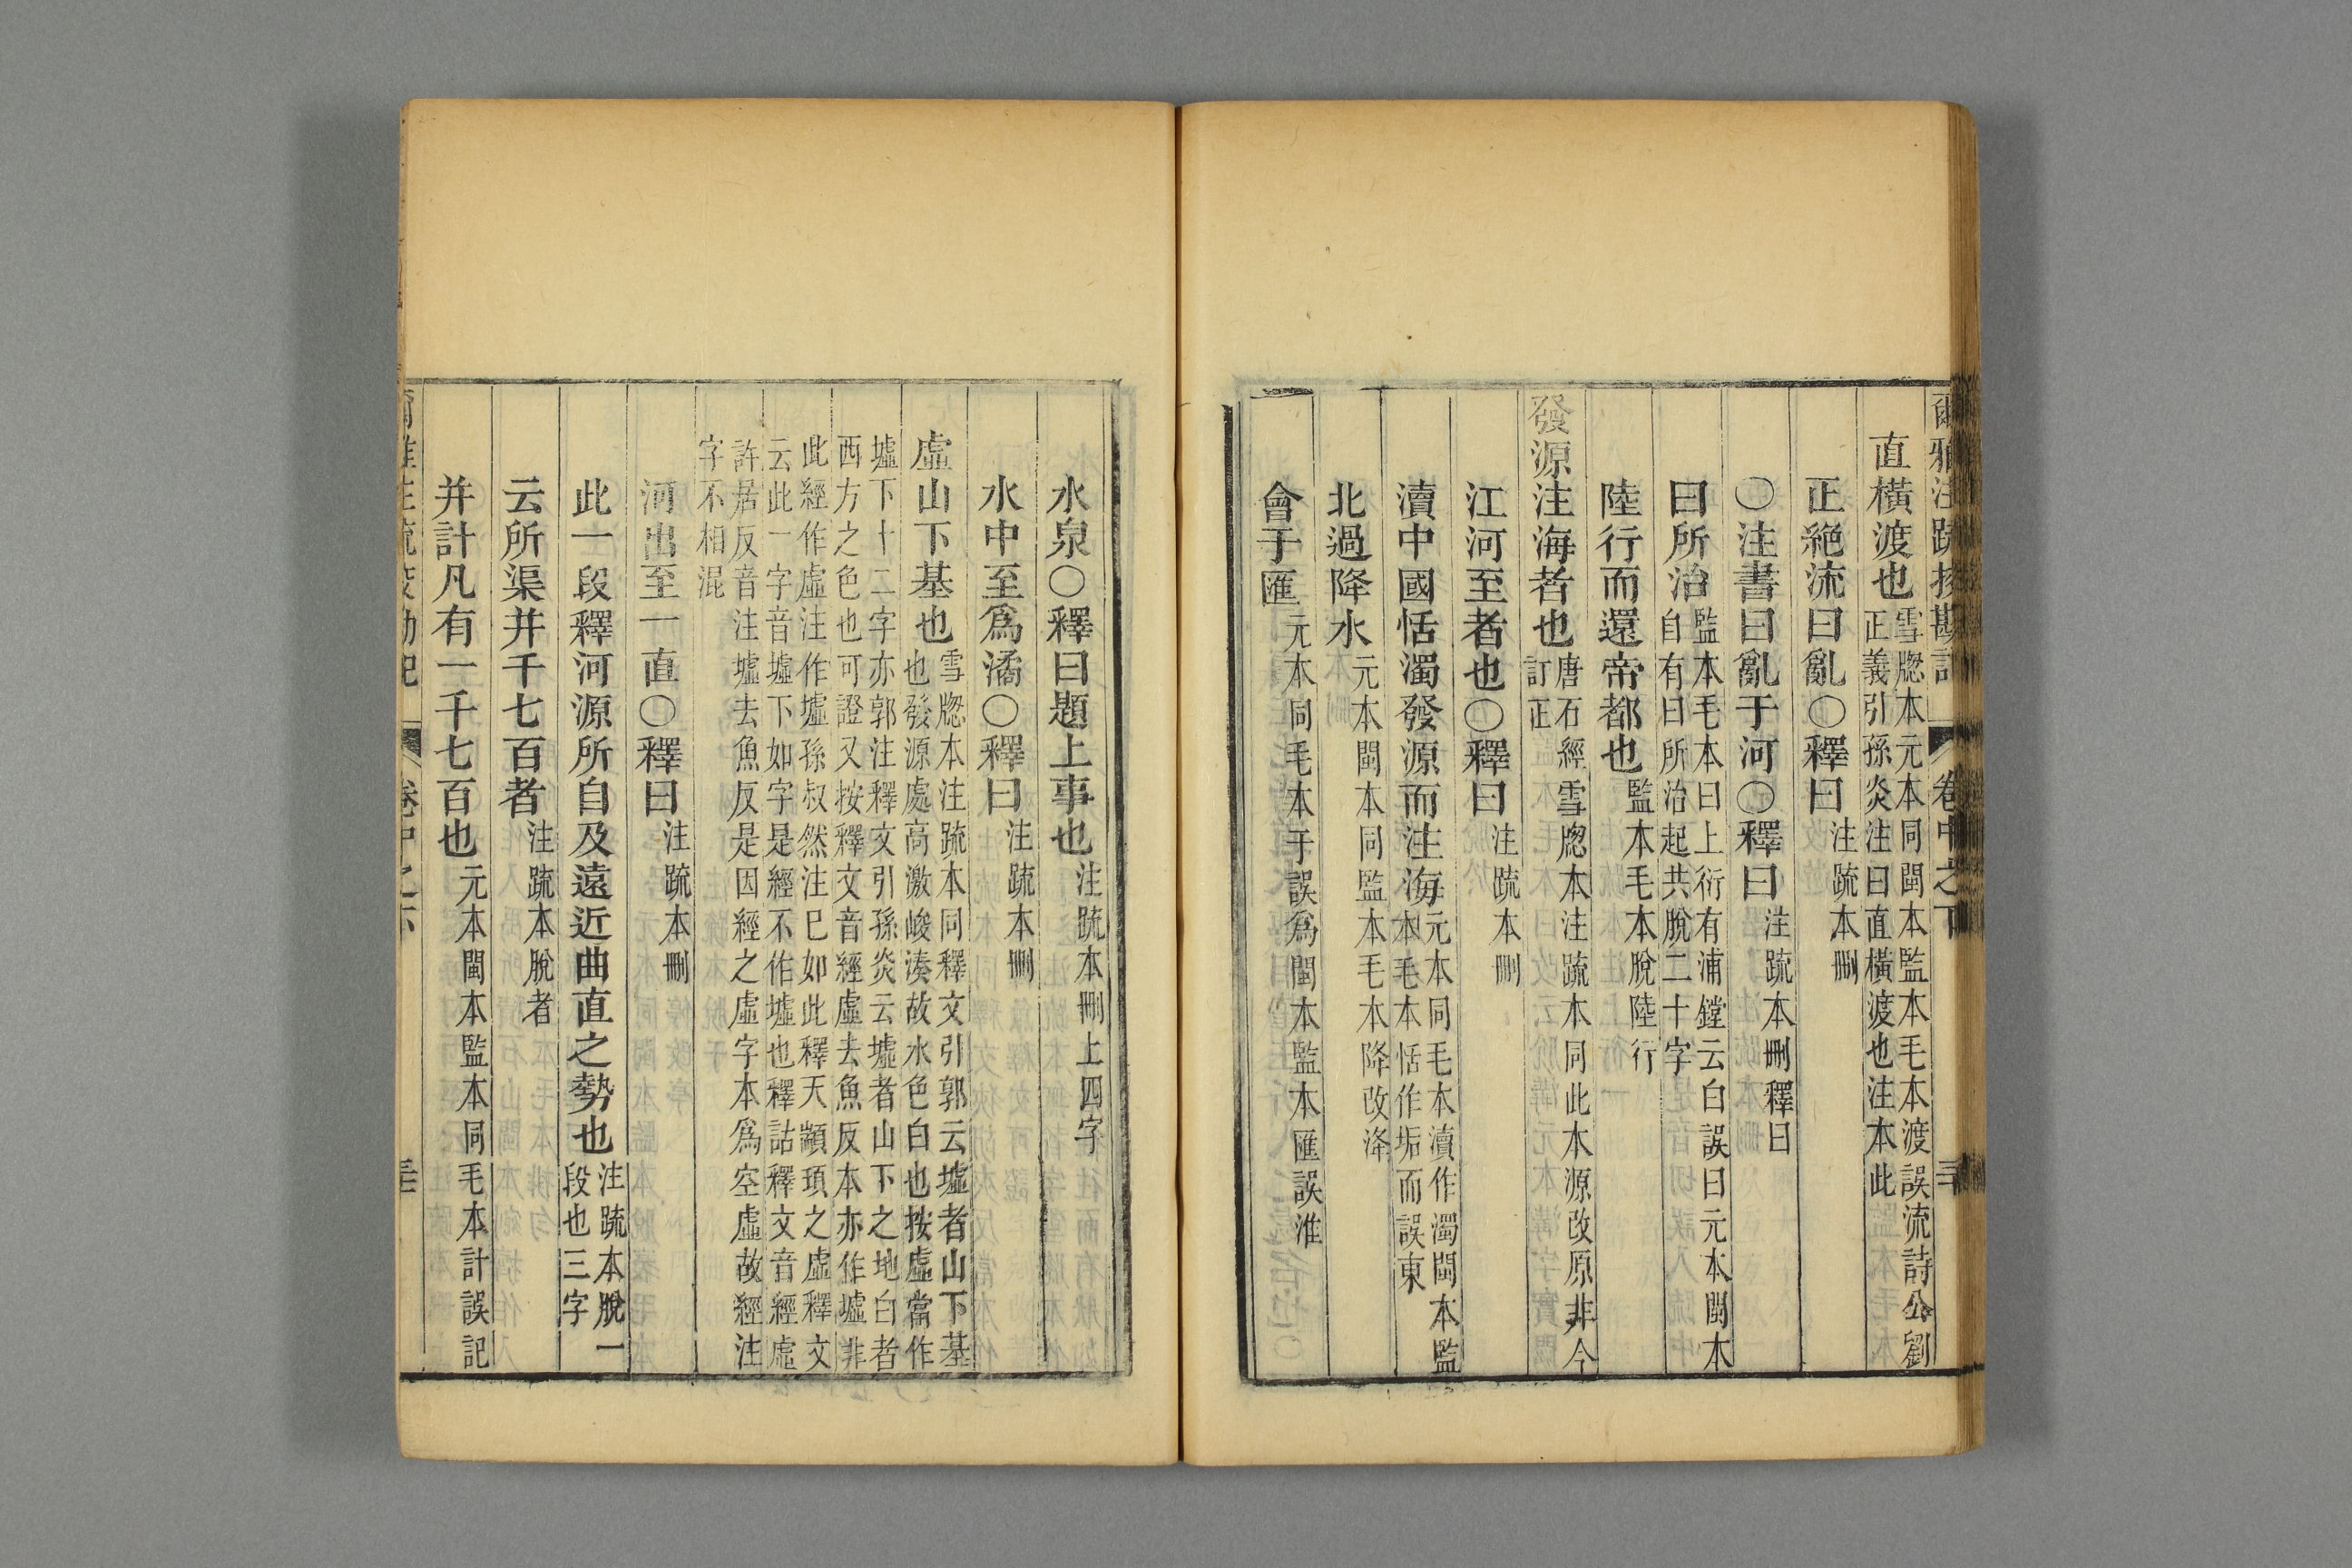 爾雅注疏挍勘記 卷中之下 三
直橫渡也雪牎本元本同閩本監本毛本渡誤流詩公劉
正義引孫炎注曰直橫渡也注本此
正絶流曰亂〇釋曰注疏本刪
〇注書曰亂于河〇釋曰注疏本刪釋曰
曰所治監本毛本曰上衍有浦鏜云白誤曰元本閩本
自有曰所治起共脫二十字
陸行而還帝都也監本毛本脫陸行
發源注海者也唐石經雪牎本注疏本同此本源改原非今
訂正
江河至者也〇釋曰注疏本刪
瀆中國恬濁發源而注海元本同毛本瀆作濁閩本監
本毛本恬作垢而誤東
北過降水元本閩本同監本毛本降改洚
會于匯元本同毛本于誤爲閩本監本匯誤淮
水泉〇釋曰題上事也注疏本刪上四字
水中至爲潏〇釋曰注疏本刪
虛山下基也雪牎本注疏本同釋文引郭云墟者山下基
也發源處高激峻湊故水色白也按虛當作
墟下十二字亦郭注釋文引孫炎云墟者山下之地白者
西方之色也可證又按釋文音經虛去魚反本亦作墟非
此經作虛注作墟孫叔然注巳如此釋天顓頊之虛釋文
云此一字音墟下如字是經不作墟也釋詁釋文音經虛
許居反音注墟去魚反是因經之虛字本爲空虛故經注
字不相混
河出至一直〇釋曰注疏本刪
此一段釋河源所自及遠近曲直之勢也注疏本脫一
段也三字
云所渠并千七百者注疏本脫者
并計凡有一千七百也元本閩本監本同毛本計誤記
卷中之下